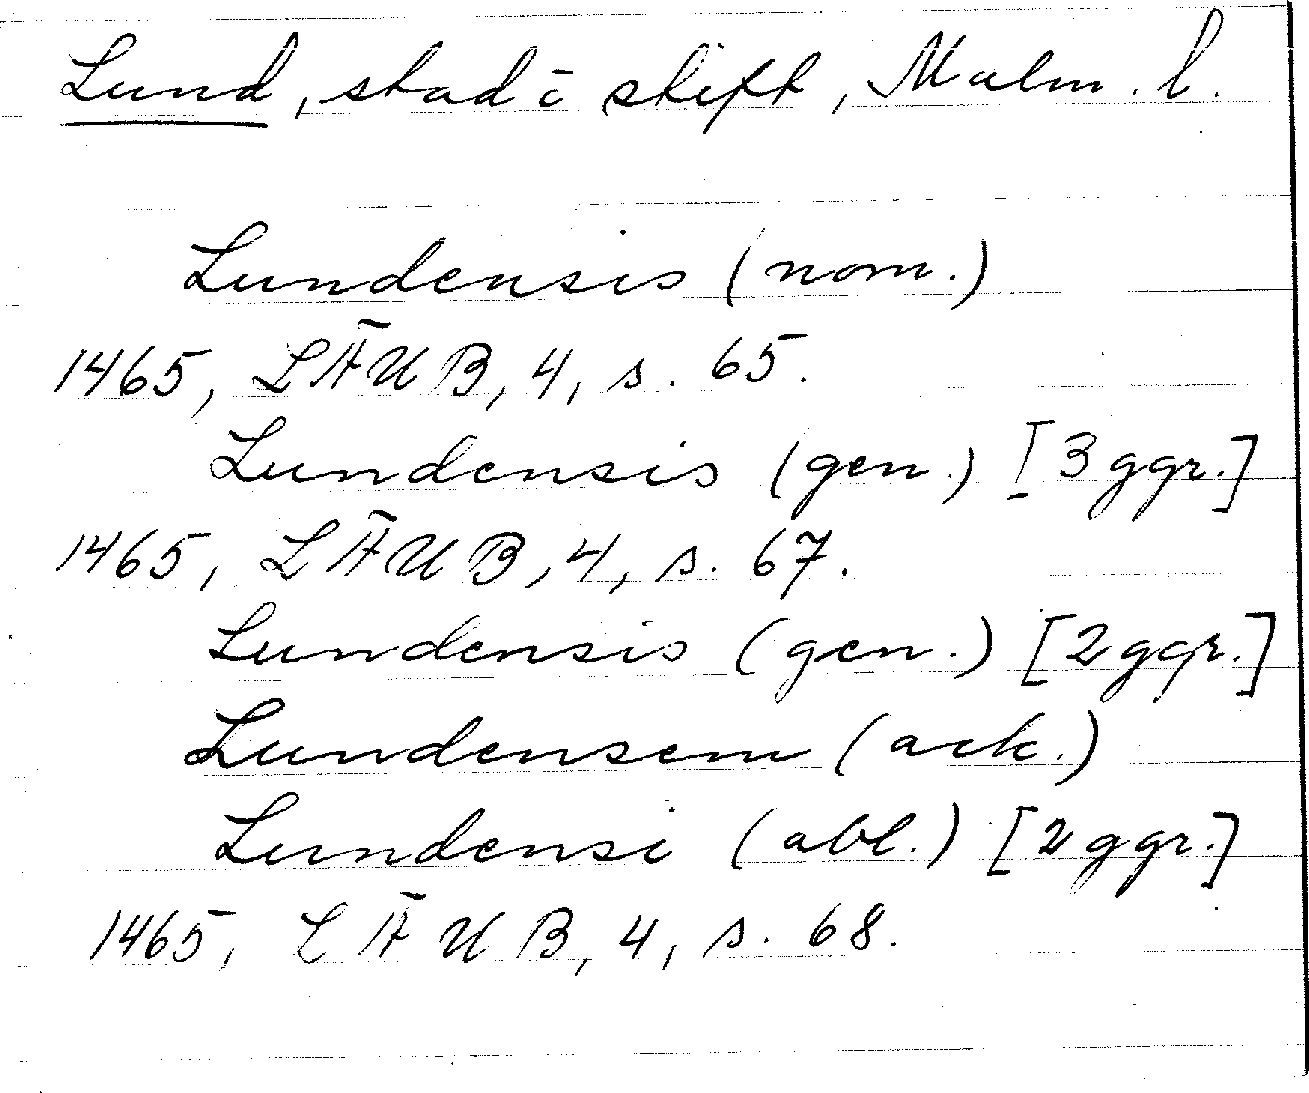 Lund, stad o stift, Malm. l.
Lundensis (nom.)
1465, LÄUB, 4, s. 65.
Lundensis (gen.) [3 ggr.]
1465, LÄUB, 4, s. 67.
Lundensis (gen.) [2 ggr.]
Lundensem (ack.)
Lundensi (abl.) [2 ggr.]
1465, LÄUB, 4, s. 68.